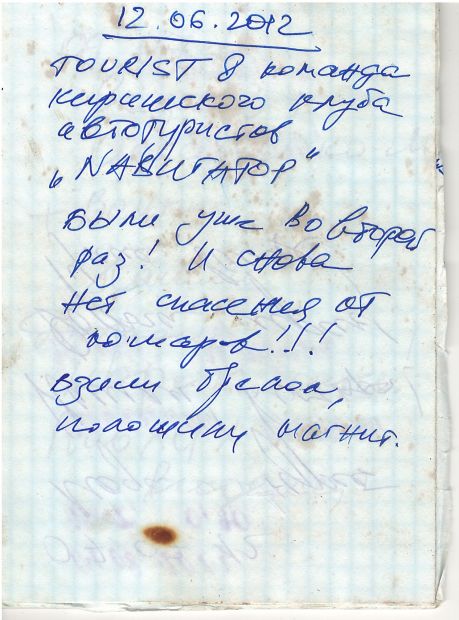 12.06.2012
TOURIST 8 команда
киришского клуба
автотуристов
„NАВИГАТОР“
Были уже во второй
раз! И снова
нет спасения от
комаров!!!
взяли брелок,
положили магнит.